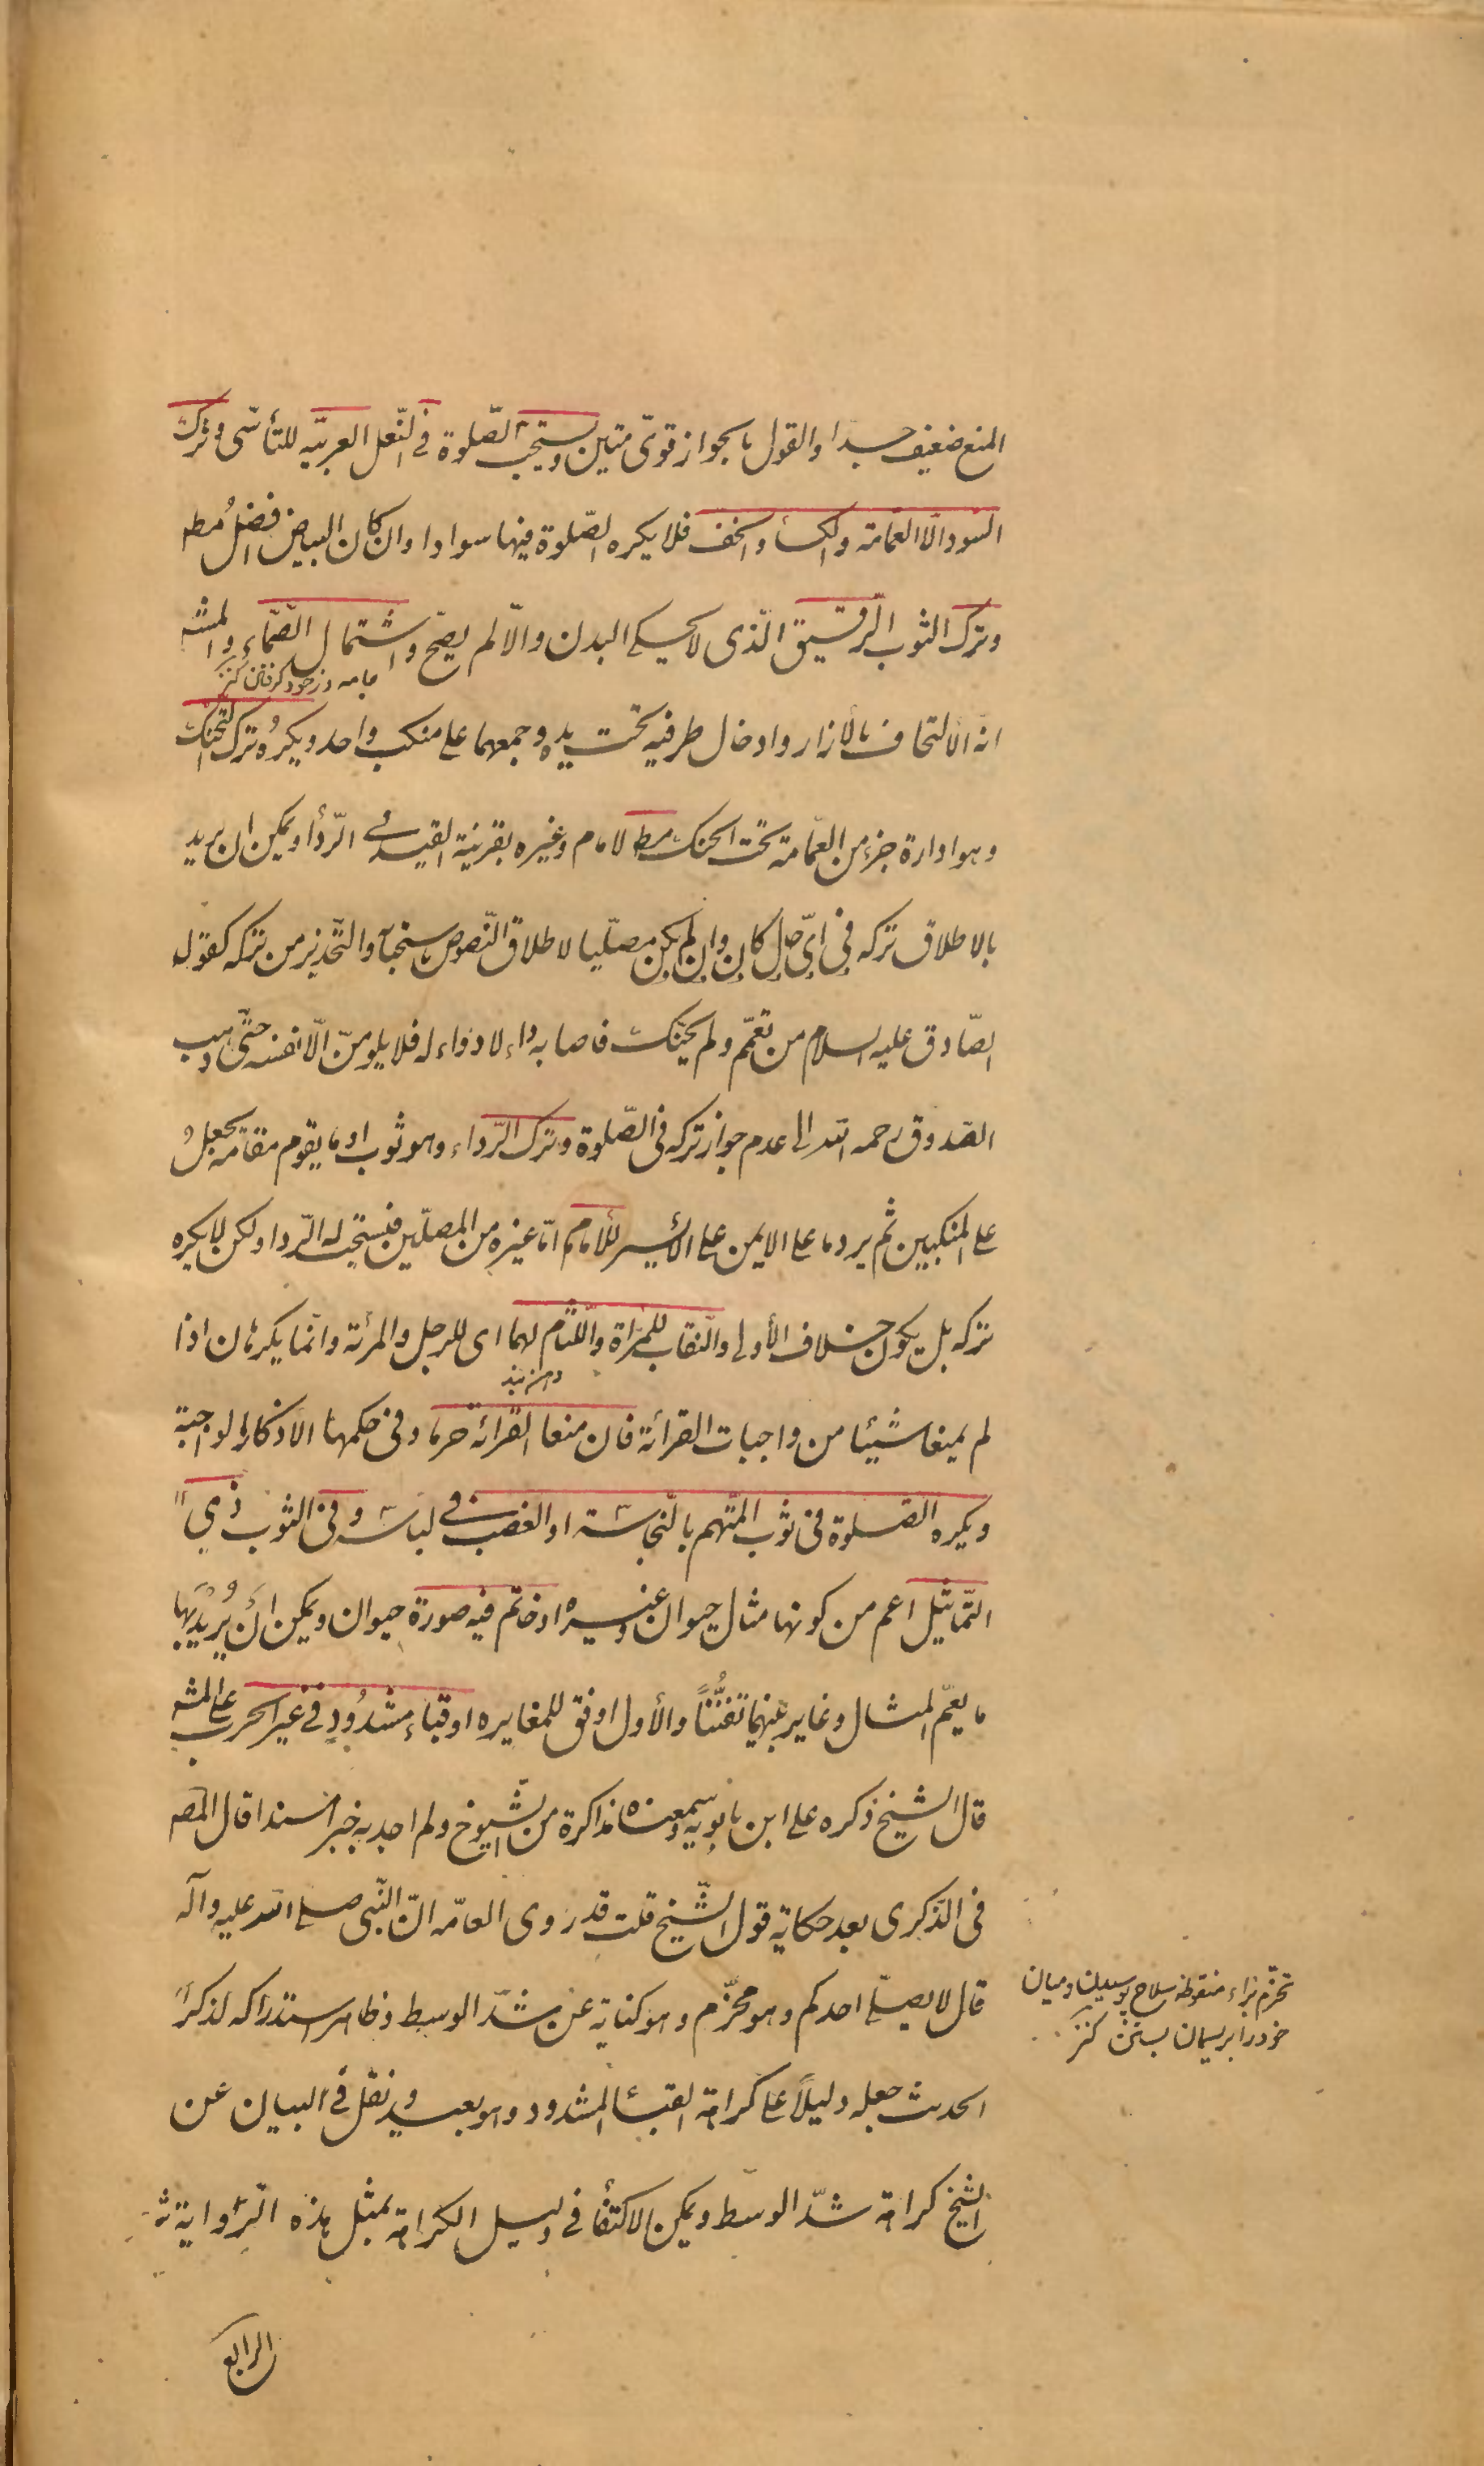 المنع ضعیف جدا والقول بالجواز قوىّ متین ویستحبّ الصّلوة فى النّعل العربیّه للتأسّى وترک
السّود الّا العمّامة والکساء والخف فلا یکره الصّلوة فیها سوادا وان کان البیاض افضلُ مط
وترک الثوب الرّقیق الّذى لا یحکى البدن والّا لم یصحّ واشتمال الصّمّاء والمشه
جامه در خود گرفتن کنز
انه الالتحاف بالأزار وادخال طرفیه تحت یده وجمعهما على منکب واحد ویکرُه ترک التحنّک
وهو ادارة جزء من العمّامة تحت الحنک مط لامام وغیره بقرینة القید فى الرّدأ ویمکن ان یرید
بالاطلاق ترکه فى اىّ حال کان وان لم یکن مصلّیا لاطلاق النّصوص باستحبابه والتّحذیر من ترکه کقول
الصّادق علیه السلام من تعمّم ولم یحنّک فاصابه داء لا دواء له فلا یلومنّ الّا نفسه حتّى ذهب
الصّدوق رحمه الله الى عدم جواز ترکه فى الصّلوة وترک الرّداء وهو ثوب او ما یقوم مقامه یجعلُ
على المنکبین ثم یرد ما على الایمن على الأیسر للأمام امّا غیره من المصلّین فیستحبّ له الرّدا ولکن لا یکره
ترکه بل یکون خلاف الأولى والنّقاب للمرأة واللّثام لهما اى للرجل والمرئة وانّما یکرهان اذا
دهن بند
لم یمنعا شیئا من واجبات القرائة فان منعا القرائة حرما وفى حکمها الاذکار الواجبة
ویکره الصّلوة فى ثوب المتّهم بالنّجاسة او الغصب فى لباسه وفى الثوب ذى
التّماثیل اعم من کونها مثال حیوان وغیره او خاتم فیه صورة حیوان ویمکن ان یُرید بها
ما یعمّ المثال وغایر بینهما تفنُّناً والأول اوفق للمغایره او قباء مشدُود فى غیر الحرب على المشه
قال الشیخ ذکره على ابن بابویه وسمعناه مذاکرة من الشّیوخ ولم اجد به خبرا مسندا قال المصه
فى الذّکرى بعد حکایة قول الشّیخ قلت قد روى العامّه انّ النّبى صلى الله علیه وآله
قال لا یصلّى احدکم وهو محزّم وهو کنایة عن شدّ الوسط وظاهر استدراکه لذکر
تحزّم بزاء منقوطه سلاح پوسیدن ومیان
خود را بریسمان بستن کنز
الحدیث جعله دلیلاً على کراهة القباء المشدود وهو بعید ونقل فى البیان عن
الشیخ کراهة شدّ الوسط ویمکن الاکتفأ فى دلیل الکراهة بمثل هذه الرّوایة
الرابع